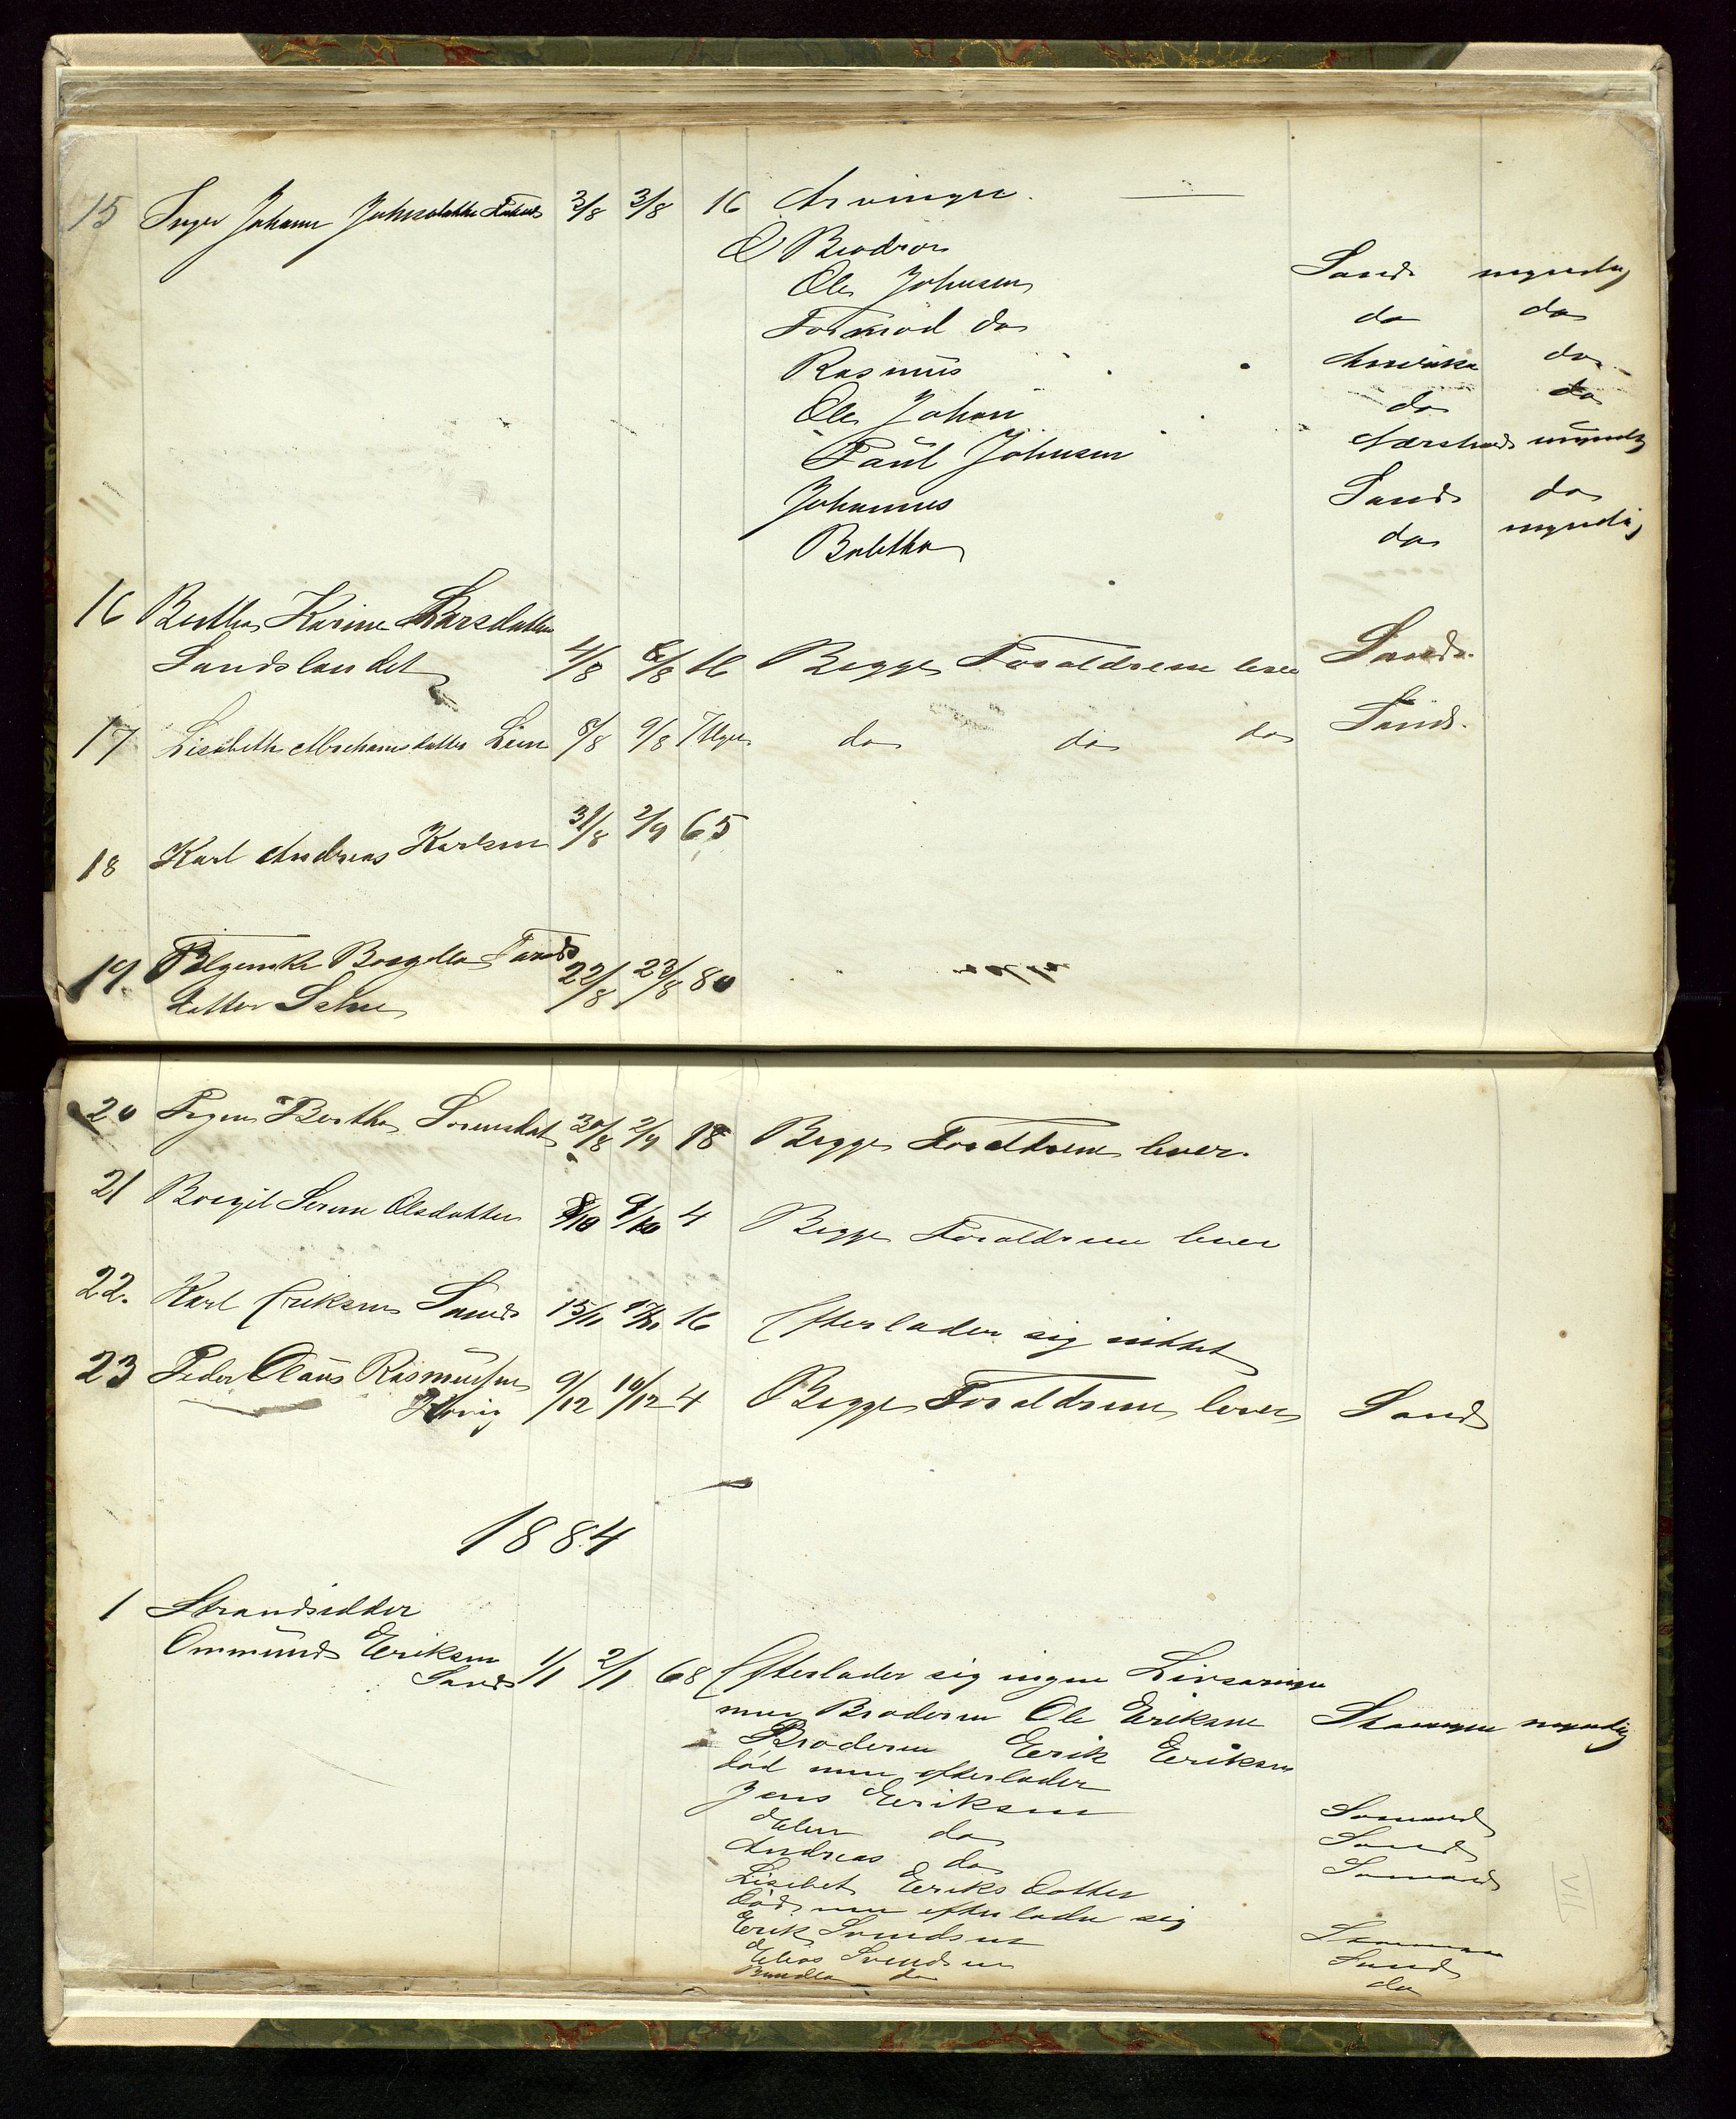 15 Inger Johanne Johnsdatter 3/8 3/8 16 Arvinger. —
Brødror
Ole Johnsen Sand myndig
Tormod do do do
Rasmus Amerika do
Ole Johan do do
Paul Johnsen Nærstrand umyndig
Johannes Sand do
Bolethe do myndig
16 Berthe Karine Larsdatter
Sandslandet 4/8 8/8 16 Begge Forældrene lever Sand.
17 Lisabeth Abrahamsdatter Lien 8/8 9/8 7 Uger do do do Sand.
18 Karl Andreas Karlsen 31/8 2/9 65
19 Borgella
datter 22/8 23/8 80
20 Pigen Berthe Sørensdat 30/8 2/9 18 Begge Forældrene lever.
21 Borgil Serine Olsdatter 8/10 9/10 4 Begge Forældrene lever
22. Karl Eriksen Sand 15/11 16 Efterlader sig intet
23 Peder Olaus Rasmussen 9/12 10/12 4 Begge Forældrene lever Sand
1884
1 Strandsidder
Ommund Eriksen
Sand 1/1 2/1 68 Efterlader sig ingen Livsarvinger
men Broderen Ole Eriksen myndig
Broderen Erik Eriksen
død men efterlader
Jens Eriksen
Elen do Sand
Andreas do
Lisebet Eriks Datter
død men efterlader sig
Erik Svendsen
Elias Svendsen Sand
do do
VII